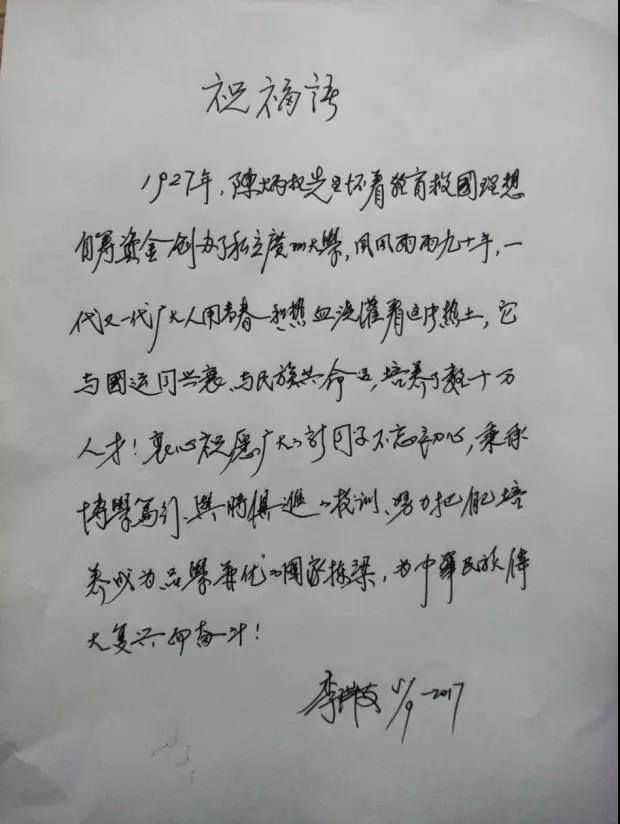 祝福語
1927年，陳炳权先生怀着教育救國理想
自筹资金创办了私立廣州大學，風風雨雨九十年，一
代又一代广大人用青春和热血浇灌着这片热土，它
与國运同兴衰、与民族共命运，培养了数十万
人才！衷心祝愿广大的学子不忘初心，秉承
博學篤行、與時俱進的校训、努力把自己培
养成为品學兼优的國家栋梁，为中華民族偉
大复兴而奋斗！
5/9-2017